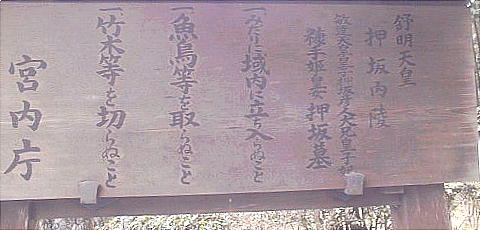 舒明天皇
押坂内陵
敏達天皇皇子押坂彦人大兄皇子妃
糠手姫皇女押坂墓
一みだりに域内に立ち入らぬこと
一魚鳥等を取らぬこと
一竹木等を切らぬこと
宮内庁